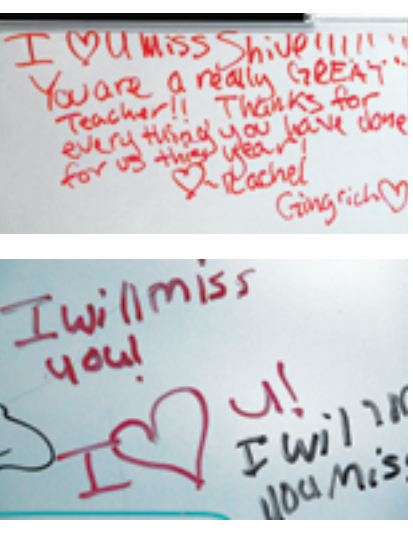 I ♡ U Miss Shive!!!!!!!
You are a really GREAT
Teacher!! Thanks for
everything you have done
for us this year!
♡-Rachel
Gingrich♡
I will miss
you!
I ♡ U!
I will
you Miss